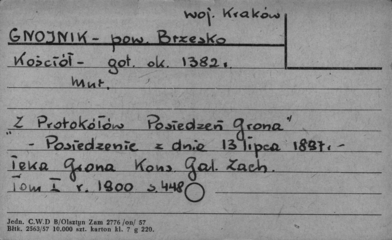 woj. Kraków
GNOJNIK - pow. Brzesko
Kościół - got. ok. 1382.
mur.
"Z Protokółów Posiedzeń Grona"
- Posiedzenie z dnia 13 lipca 1897. -
Teka Grona Kons. Gal. Zach.
Tom I r. 1900 s. 448
Jedn. C.W.D B/Olsztyn Zam 2776/on/57
Bltk. 2563/57 10.000 szt. karton kl. 7 g 220.